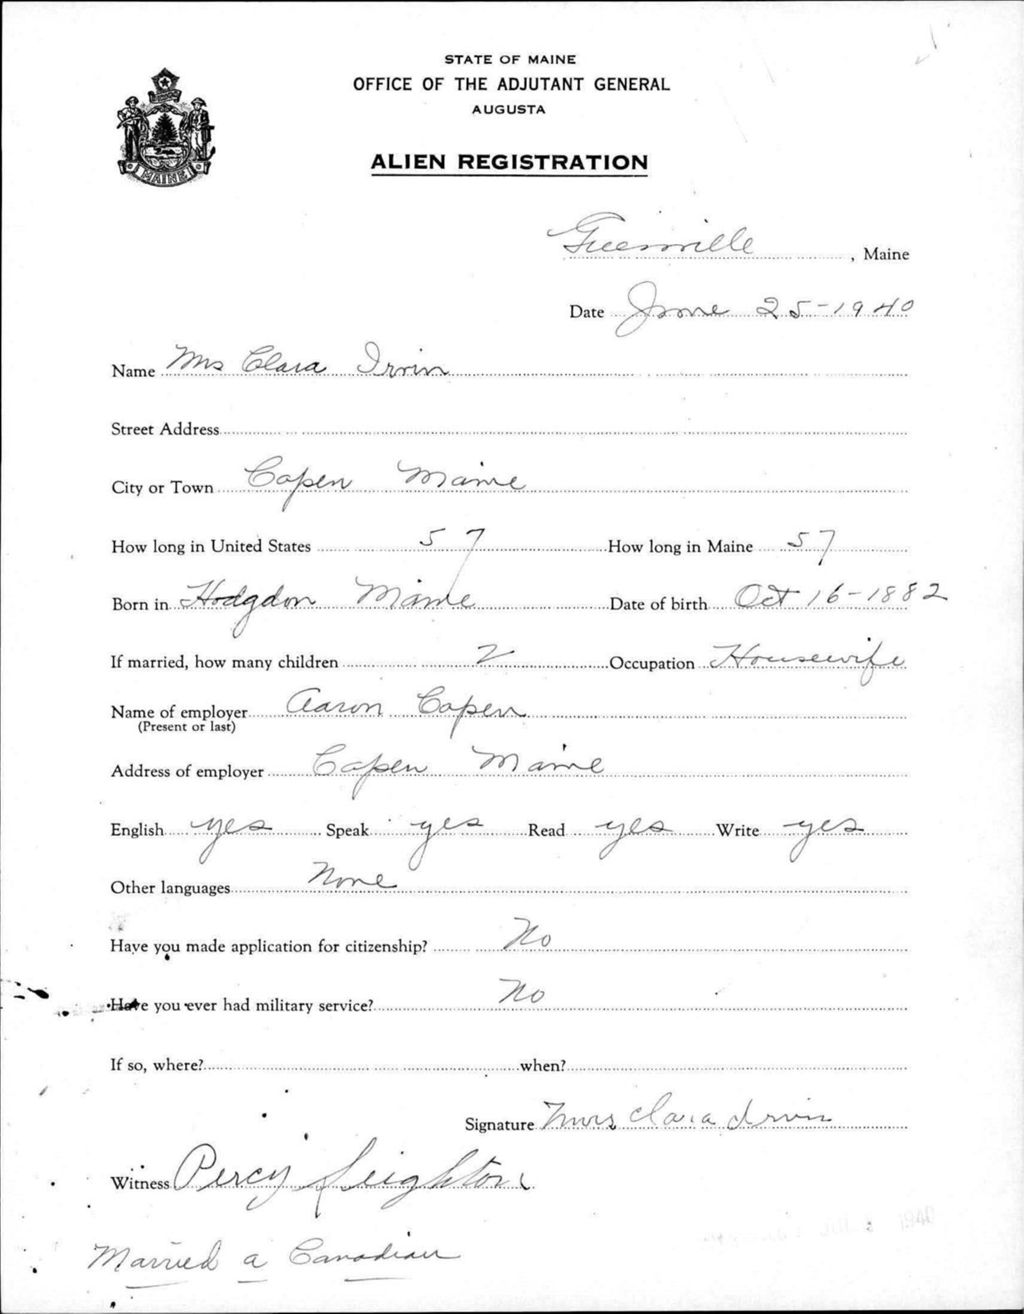 STATE OF MAINE
OFFICE OF THE ADJUTANT GENERAL
AUGUSTA
ALIEN REGISTRATION
MAINE
Greenville, Maine
Date June 25-1940
Name Mrs Clara Irvin
Street Address
City or Town Capen Maine
How long in United States 57 How long in Maine 57
Born in Hodgdon Maine Date of birth Oct 16-1882
If married, how many children 2 Occupation Housewife
Name of employer Aaron Capen
(Present or last)
Address of employer Capen Maine
English yes Speak yes Read yes Write yes
Other languages None
Have you made application for citizenship? No
Have you ever had military service? No
If so, where? when?
Signature Mrs Clara Irvin
Witness Percy Leighton
1940
Married a Canadian